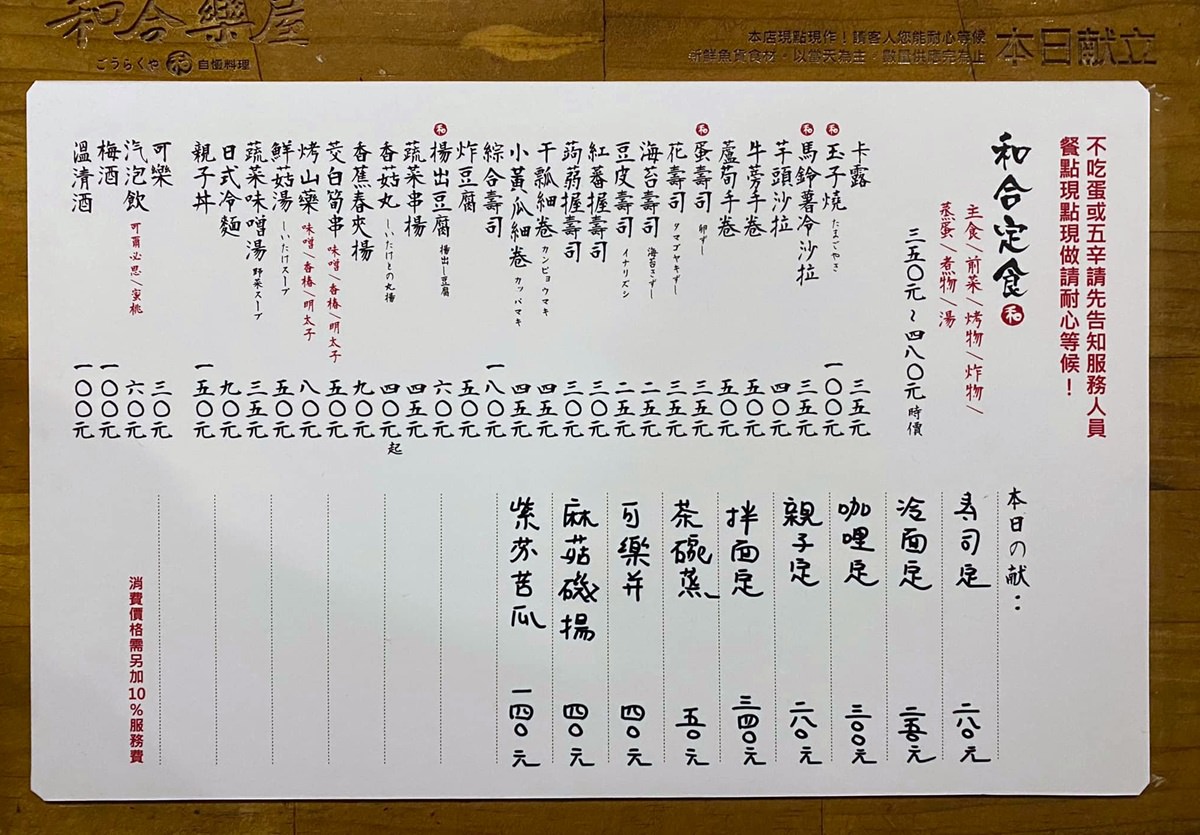 和合樂屋
ごうらくや 和 自慢料理
本日献立
本店現點現作！請客人您能耐心等候
新鮮魚貨食材，以當天為主，數量供應完為止
不吃蛋或五辛請先告知服務人員
餐點現點現做請耐心等候！
和合定食 和
主食／前菜／烤物／炸物／
蒸蛋／煮物／湯
三五〇元～四八〇元 時價
卡露 三五元
和 玉子燒 たまごやき 一〇〇元
和 馬鈴薯冷沙拉 三五元
芋頭沙拉 四〇元
牛蒡手卷 五〇元
蘆筍手卷 五〇元
和 蛋壽司 卵ずし 三五元
花壽司 タマゴヤキずし 三五元
海苔壽司 海苔さずし 二五元
豆皮壽司 イナリズシ 二五元
紅蕃握壽司 三〇元
蒟蒻握壽司 三〇元
干瓢細卷 カンピョウマキ 四五元
小黃瓜細卷 カッパマキ 四五元
綜合壽司 一八〇元
炸豆腐 五〇元
和 揚出豆腐 揚出し豆腐 六〇元
蔬菜串揚 四五元
香菇丸 しいたけとの丸揚 四〇元起
香蕉春夾揚 九〇元
茭白筍串 味噌／香椿／明太子 五〇元
烤山藥 味噌／香椿／明太子 八〇元
鮮菇湯 しいたけスープ 五〇元
蔬菜味噌湯 野菜スープ 三五元
日式冷麵 九〇元
親子丼 一五〇元
可樂 三〇元
汽泡飲 可爾必思／蜜桃 六〇元
梅酒 一〇〇元
溫清酒 一〇〇元
本日の献：
寿司定 二八〇元
冷面定 二五〇元
咖哩定 三〇〇元
親子定 二八〇元
拌面定 三四〇元
茶碗蒸 五〇元
可樂并 四〇元
麻菇磯揚 四〇元
紫苏苦瓜 一四〇元
消費價格需另加10%服務費